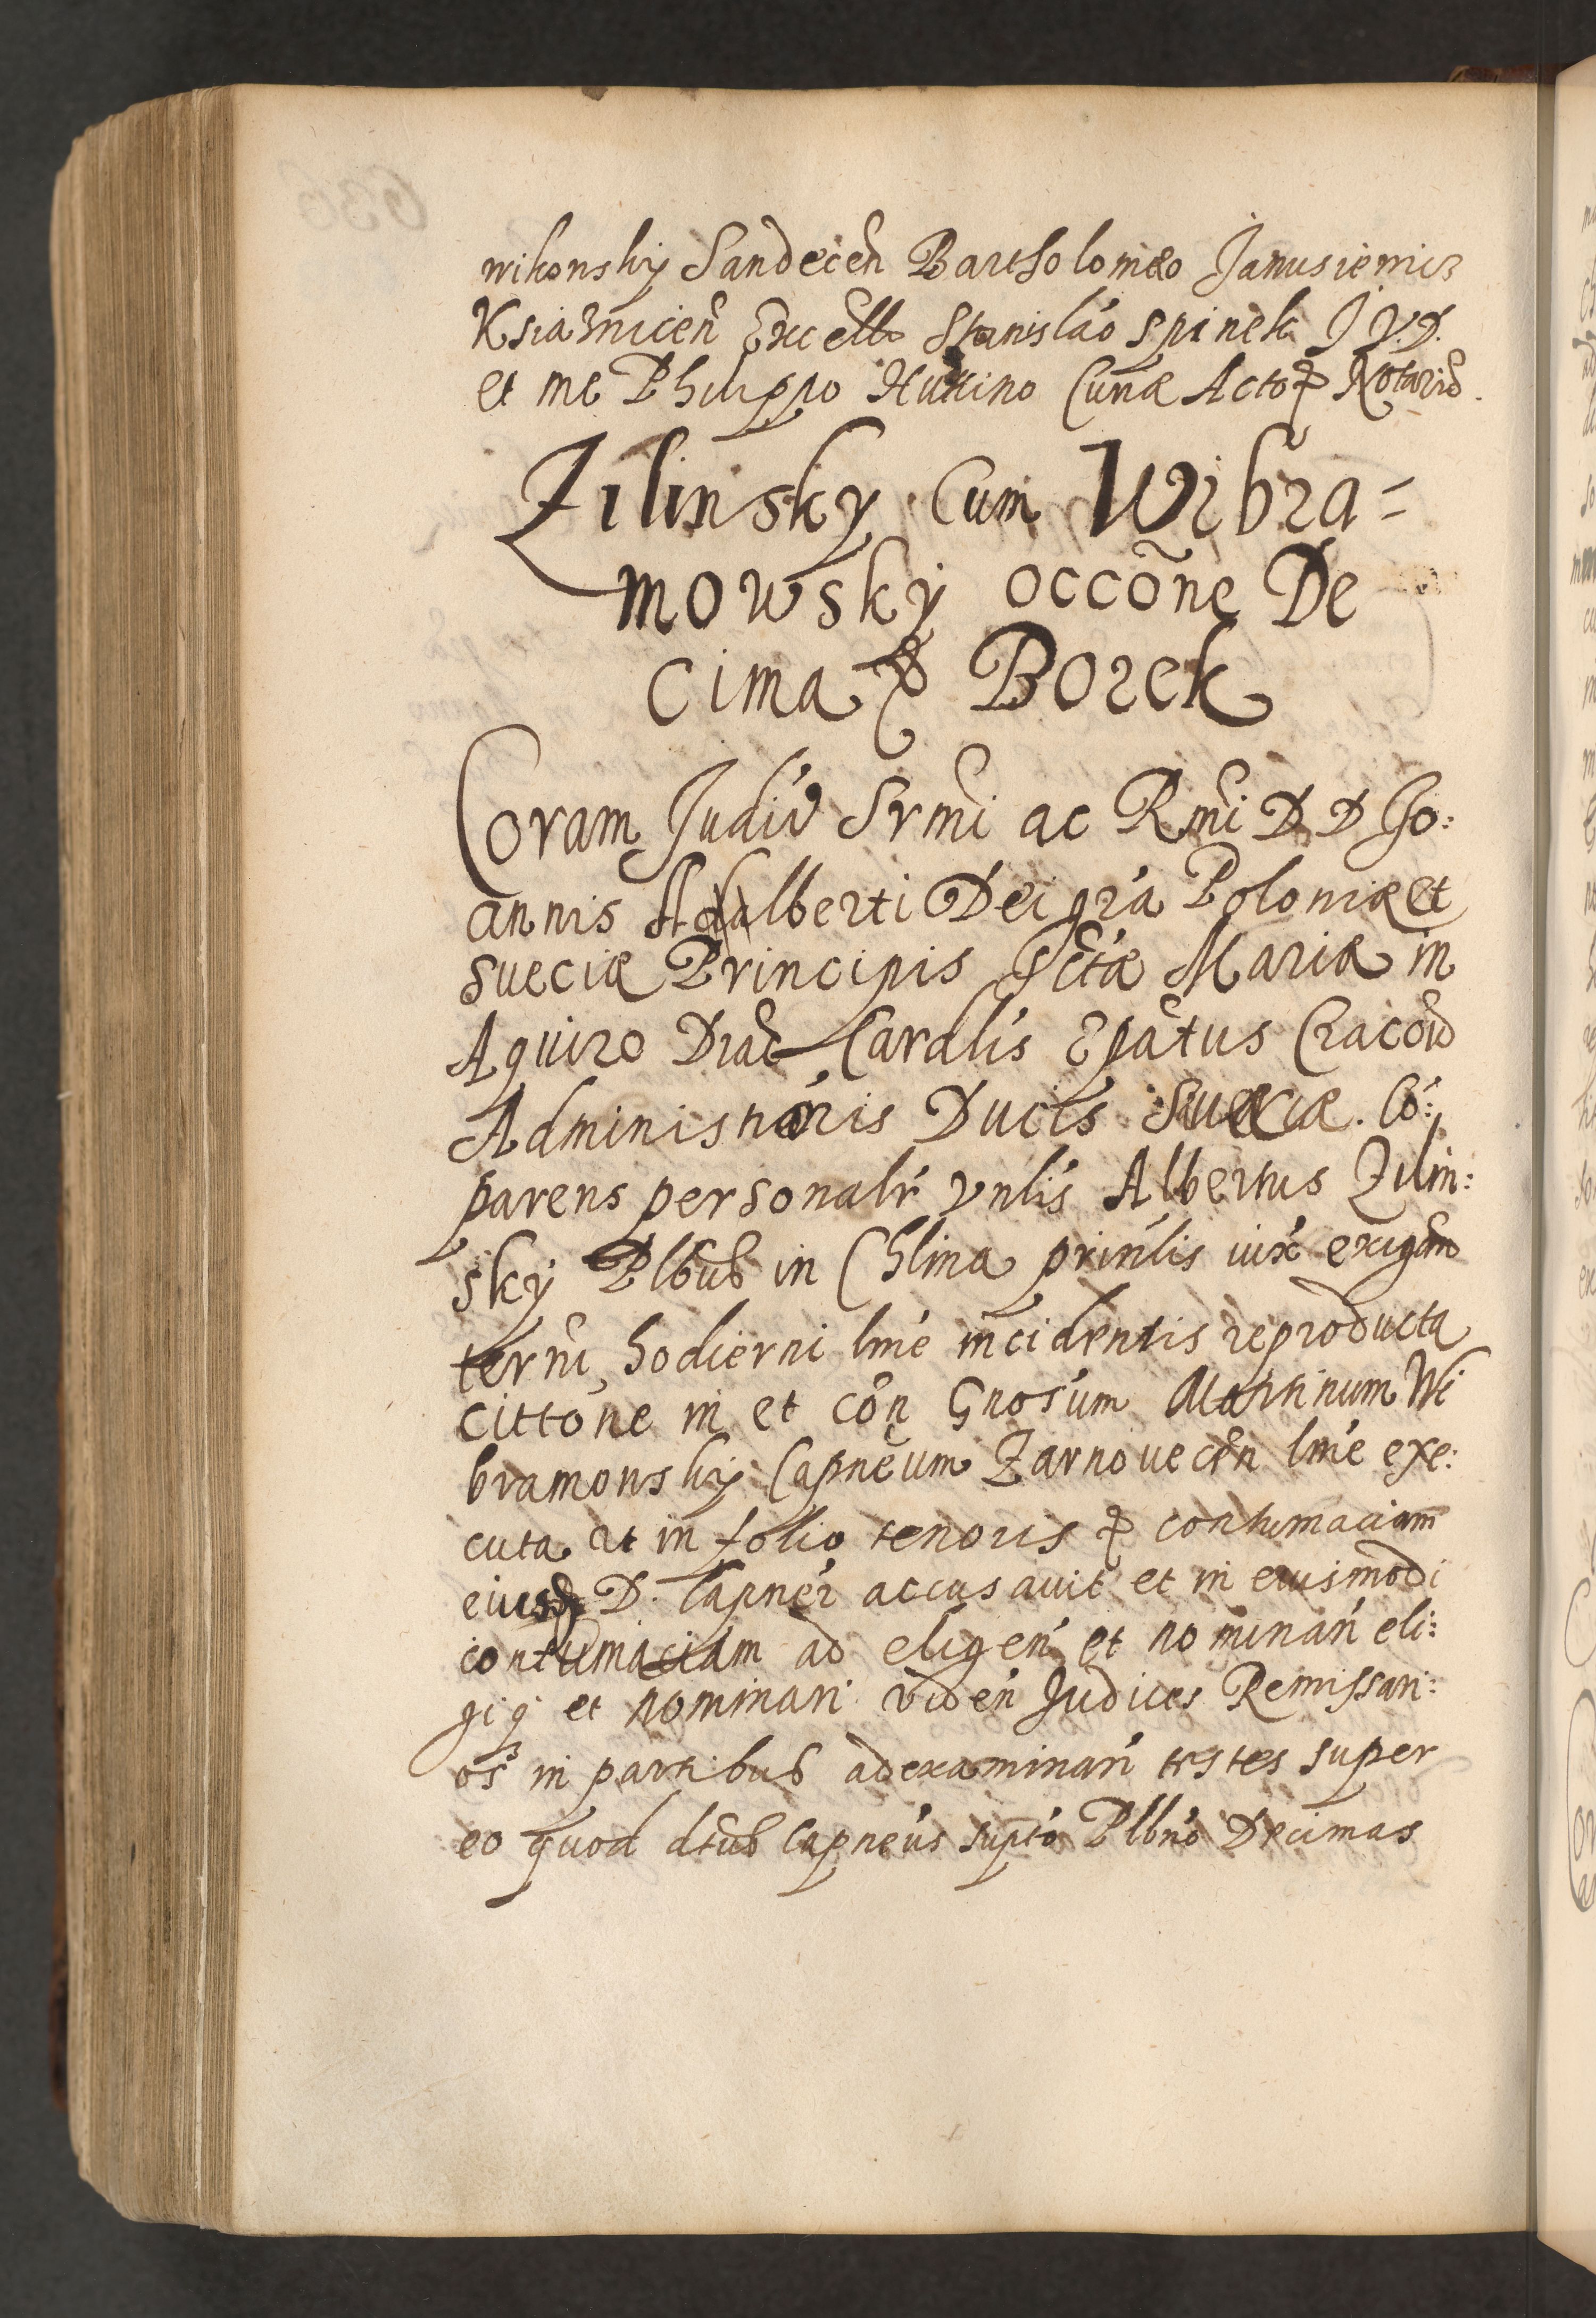 wikowsky Sandecen̄ Bartholomæo Janusiewicz
Ksiaznicen̄ Excell Stanisláo Spinek J V. D.
et me Philippo Huttino Curiæ Actoꝝ Notario.
Zilinsky Cum Wibra=
mowsky occōne De
cimaꝝ Borek
Coram Judio Srmi ac Rmi D D Jo:
annis Adalberti Dei grá Poloniæ et
Sueciæ Principis Sctæ Mariæ in
Aquiro Diac Cardlis Epātus Cracou
Administrōris Ducis Sueciæ. Có:
parens personalr vnlis Albertus Zilin:
sky Plbus in Chlina prinlis iux exigen
term hodierni lmé incidentis reproducta
cittóne in et cón Gnosum Martinum Wi
bramowsky Capneum Zarnouecen lmé exe:
cuta ut in folio tenoris ꝑ contumaciam
eiusd D. Capnei accusauit et in eiusmodi
contumaciam ad eligen et nominan eli:
gi q et nominari viden Judices Remissari:
os in partibus ad examinan testes super
eo quod dtus Capneus supto Plbno Decimas